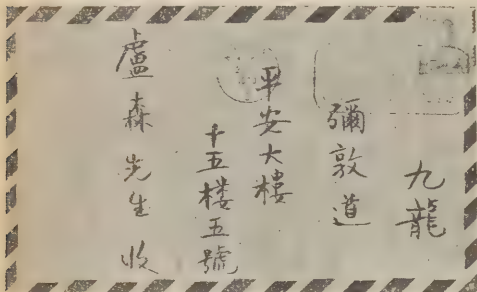 九龍
彌敦道
平安大樓
十五楼五號
盧森先生收